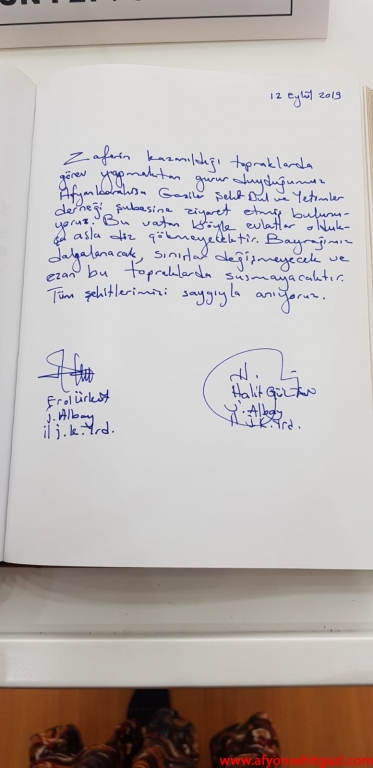 12 Eylül 2019
Zaferin kazanıldığı topraklarda
görev yapmaktan gurur duyduğumuz
Afyonkarahisar Gaziler Şehit Dul ve Yetimler
derneği şubesine ziyaret etmiş bulunu-
yoruz. Bu vatan böyle evlatlar olduk-
ça asla diz çökmeyecektir. Bayrağımız
dalgalanacak, sınırlar değişmeyecek ve
ezan bu topraklarda susmayacaktır.
Tüm şehitlerimizi saygıyla anıyoruz.
Erol
J. Albay
il j. k. Yrd.
Halit
J. Albay
il j.k. Yrd.